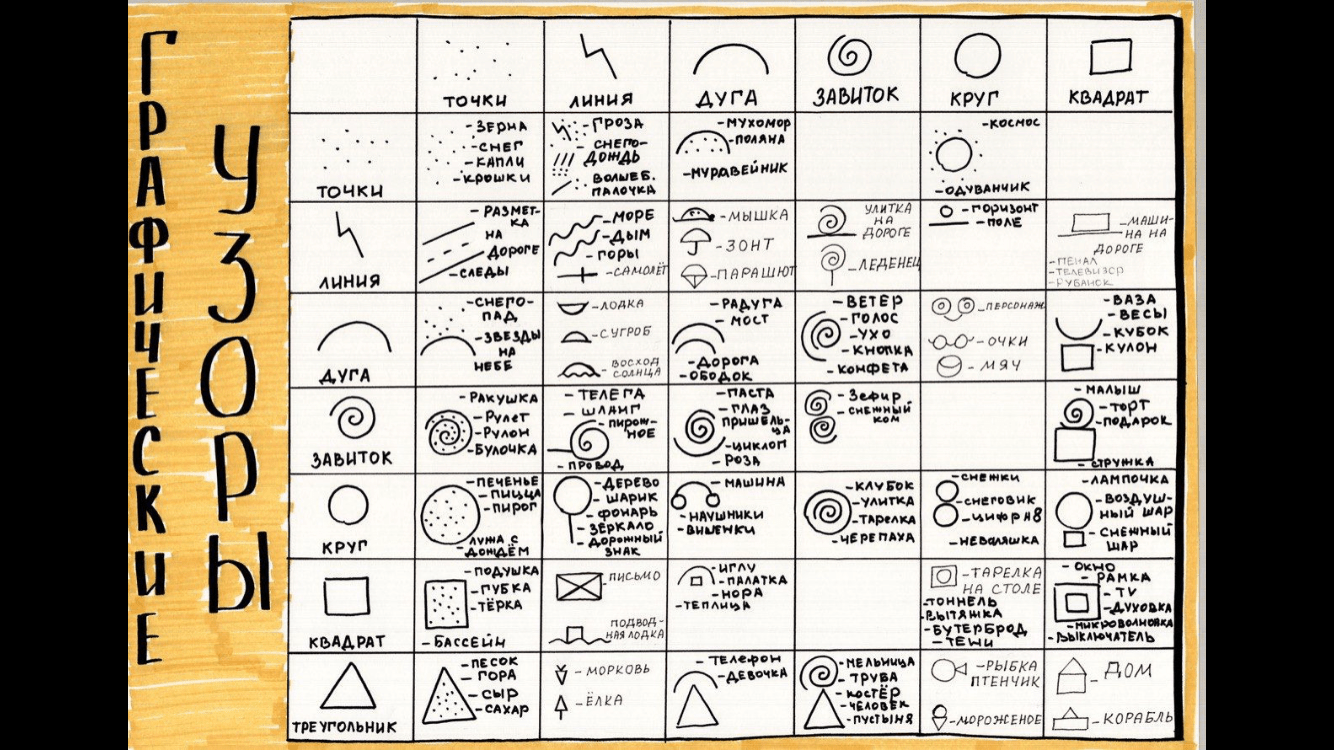 ГРАФИЧЕСКИЕ
УЗОРЫ
ТОЧКИ
ЛИНИЯ
ДУГА
ЗАВИТОК
КРУГ
КВАДРАТ
ТОЧКИ
-ЗЕРНА
-СНЕГ
-КАПЛИ
-КРОШКИ
-ГРОЗА
-СНЕГО-
ДОЖДЬ
-ВОЛШЕБ.
ПАЛОЧКА
-МУХОМОР
-ПОЛЯНА
-МУРАВЕЙНИК
-КОСМОС
-ОДУВАНЧИК
ЛИНИЯ
-РАЗМЕТ-
КА
НА
ДОРОГЕ
-СЛЕДЫ
-МОРЕ
-ДЫМ
-ГОРЫ
-САМОЛЁТ
-МЫШКА
-ЗОНТ
-ПАРАШЮТ
УЛИТКА
НА
ДОРОГЕ
-ЛЕДЕНЕЦ
-ГОРИЗОНТ
-ПОЛЕ
-МАШИ-
НА НА
ДОРОГЕ
-ПЕНАЛ
-ТЕЛЕВИЗОР
-РУБАНОК
ДУГА
-СНЕГО-
ПАД
-ЗВЕЗДЫ
НА
НЕБЕ
-ЛОДКА
-СУГРОБ
ВОСХОД
СОЛНЦА
-РАДУГА
-МОСТ
-ДОРОГА
-ОБОДОК
-ВЕТЕР
-ГОЛОС
-УХО
-КНОПКА
-КОНФЕТА
-ПЕРСОНАЖ
-ОЧКИ
-МЯЧ
-ВАЗА
-ВЕСЫ
-КУБОК
-КУЛОН
ЗАВИТОК
-РАКУШКА
-РУЛЕТ
-РУЛОН
-БУЛОЧКА
-ТЕЛЕГА
-ШЛАНГ
-ПИРОЖ-
НОЕ
-ПРОВОД
-ПАСТА
-ГЛАЗ
ПРИШЕЛЬ-
ЦА
-ЦИКЛОП
-РОЗА
-ЗЕФИР
-СНЕЖНЫЙ
КОМ
-МАЛЫШ
-ТОРТ
-ПОДАРОК
-СТРУЖКА
КРУГ
-ПЕЧЕНЬЕ
-ПИЦЦА
-ПИРОГ
-ЛУЖА С
ДОЖДЁМ
-ДЕРЕВО
-ШАРИК
-ФОНАРЬ
-ЗЕРКАЛО
-ДОРОЖНЫЙ
ЗНАК
-МАШИНА
-НАУШНИКИ
-ВИШЕНКИ
-КЛУБОК
-УЛИТКА
-ТАРЕЛКА
-ЧЕРЕПАХА
-СНЕЖКИ
-СНЕГОВИК
-ЦИФРА 8
-НЕВАЛЯШКА
-ЛАМПОЧКА
-ВОЗДУШ-
НЫЙ ШАР
-СНЕЖНЫЙ
ШАР
КВАДРАТ
-ПОДУШКА
-ГУБКА
-ТЁРКА
-БАССЕЙН
-ПИСЬМО
ПОДВОД-
НАЯ ЛОДКА
-ИГЛУ
-ПАЛАТКА
-НОРА
-ТЕПЛИЦА
-ТАРЕЛКА
НА СТОЛЕ
-ТОННЕЛЬ
-ВЫТЯЖКА
-БУТЕРБРОД
-ОКНО
-РАМКА
-TV
-ДУХОВКА
-МИКРОВОЛНОВКА
-ВЫКЛЮЧАТЕЛЬ
ТРЕУГОЛЬНИК
-ПЕСОК
-ГОРА
-СЫР
-САХАР
-МОРКОВЬ
-ЁЛКА
-ТЕЛЕФОН
-ДЕВОЧКА
-МЕЛЬНИЦА
-ТРУБА
-КОСТЁР
-ЧЕЛОВЕК
-ПУСТЫНЯ
-РЫБКА
ПТЕНЧИК
-МОРОЖЕНОЕ
-ДОМ
-КОРАБЛЬ